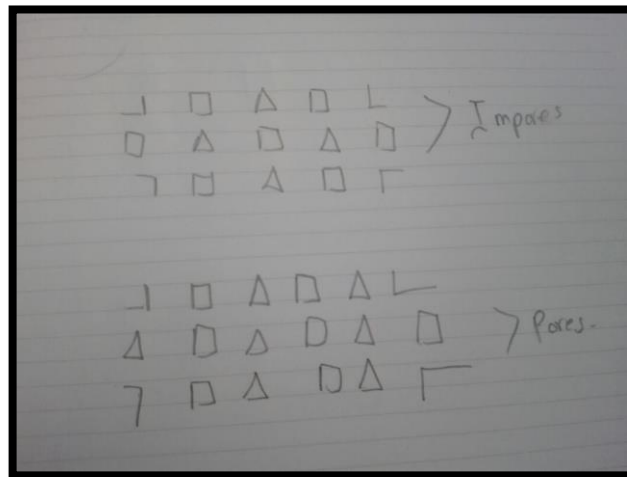 Impares
Pares.